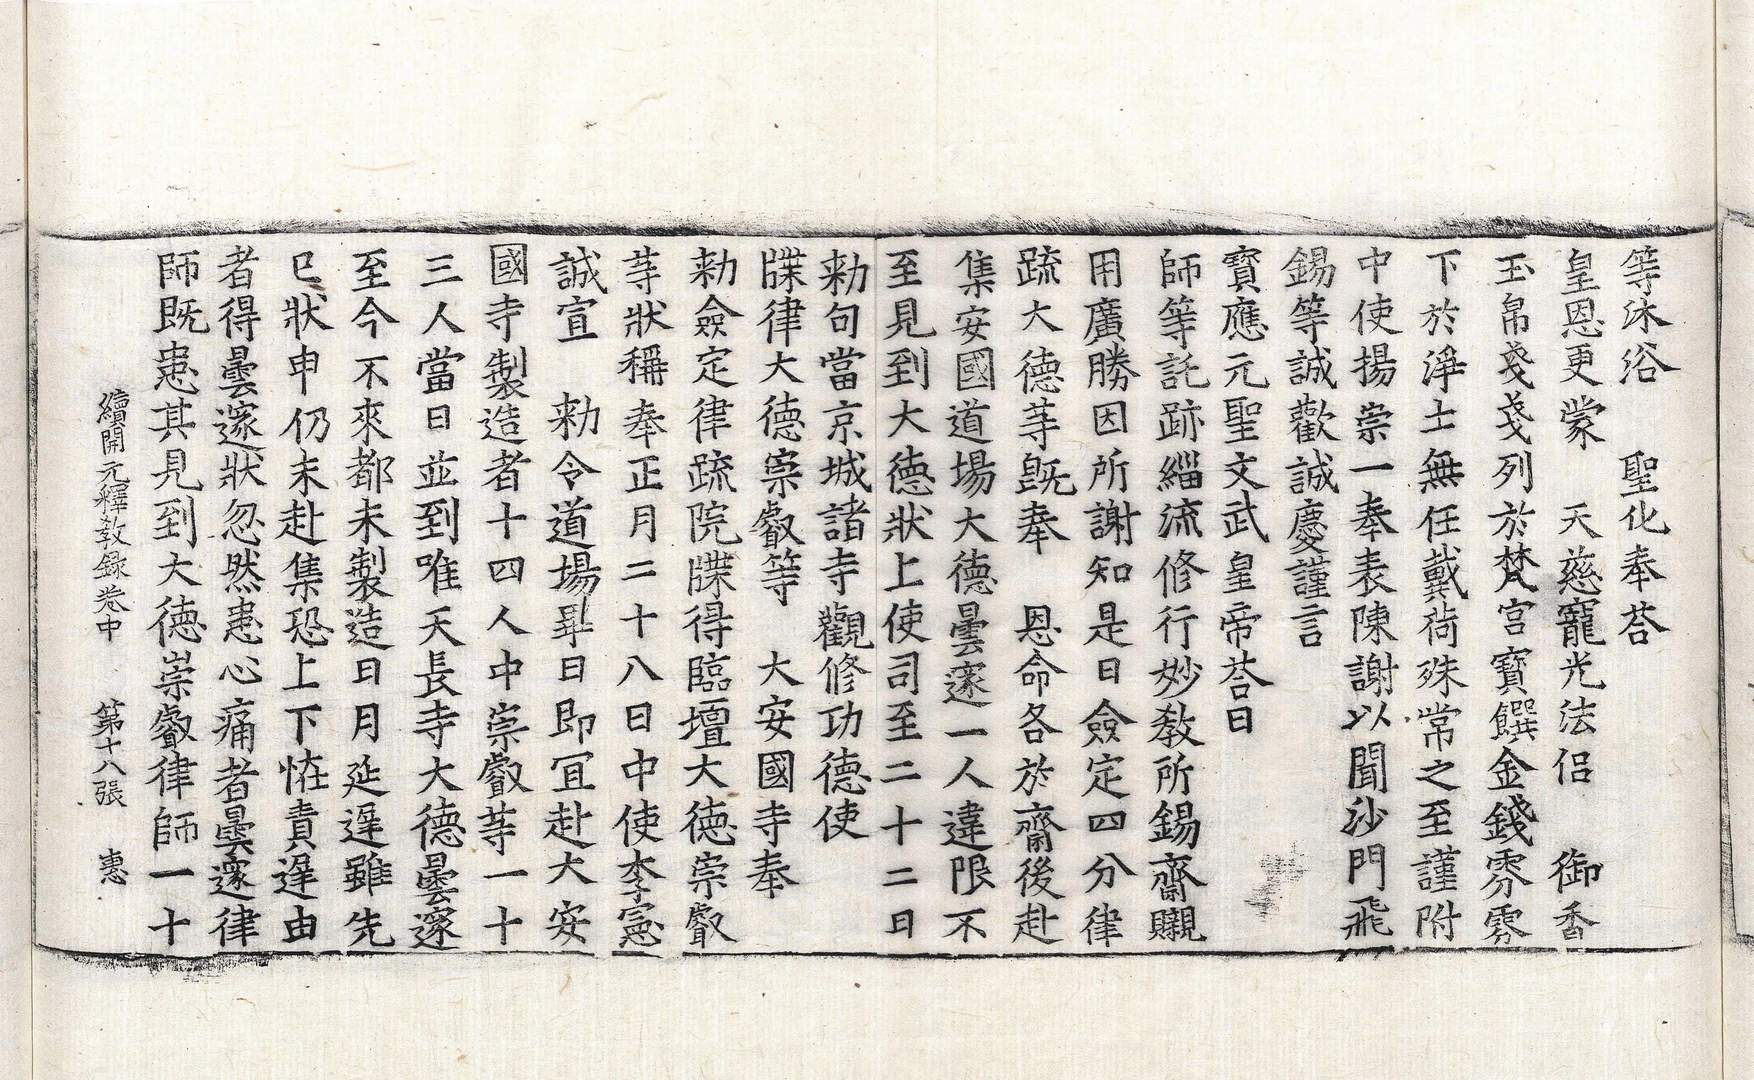 等沐浴　聖化奉荅
皇恩更蒙　天慈寵光法侶　御香
玉帛戔戔列於梵宮寶饌金錢雰雰
下於淨土無任戴荷殊常之至謹附
中使揚崇一奉表陳謝以聞沙門飛
錫等誠歡誠慶謹言
寶應元聖文武皇帝荅曰
師等託跡緇流修行妙教所錫齋嚫
用廣勝因所謝知是日僉定四分律
疏大德䓁旣奉　恩命各於齋後赴
集安國道場大德曇邃一人違限不
至見到大德狀上使司至二十二日
勑句當京城諸寺觀修功德使
牒律大德崇叡等　大安國寺奉
勑僉定律疏院牒得臨壇大德崇叡
䓁狀稱奉正月二十八日中使李憲
誠宣　勑令道場畢日即冝赴大安
國寺製造者十四人中崇叡䓁一十
三人當日並到唯天長寺大德曇邃
至今不來都未製造日月延遟雖先
已狀申仍未赴集恐上下恠責遟由
者得曇邃狀忽然患心痛者曇邃律
師既患其見到大德崇叡律師一十
續開元釋教錄卷中　第十八張　惠